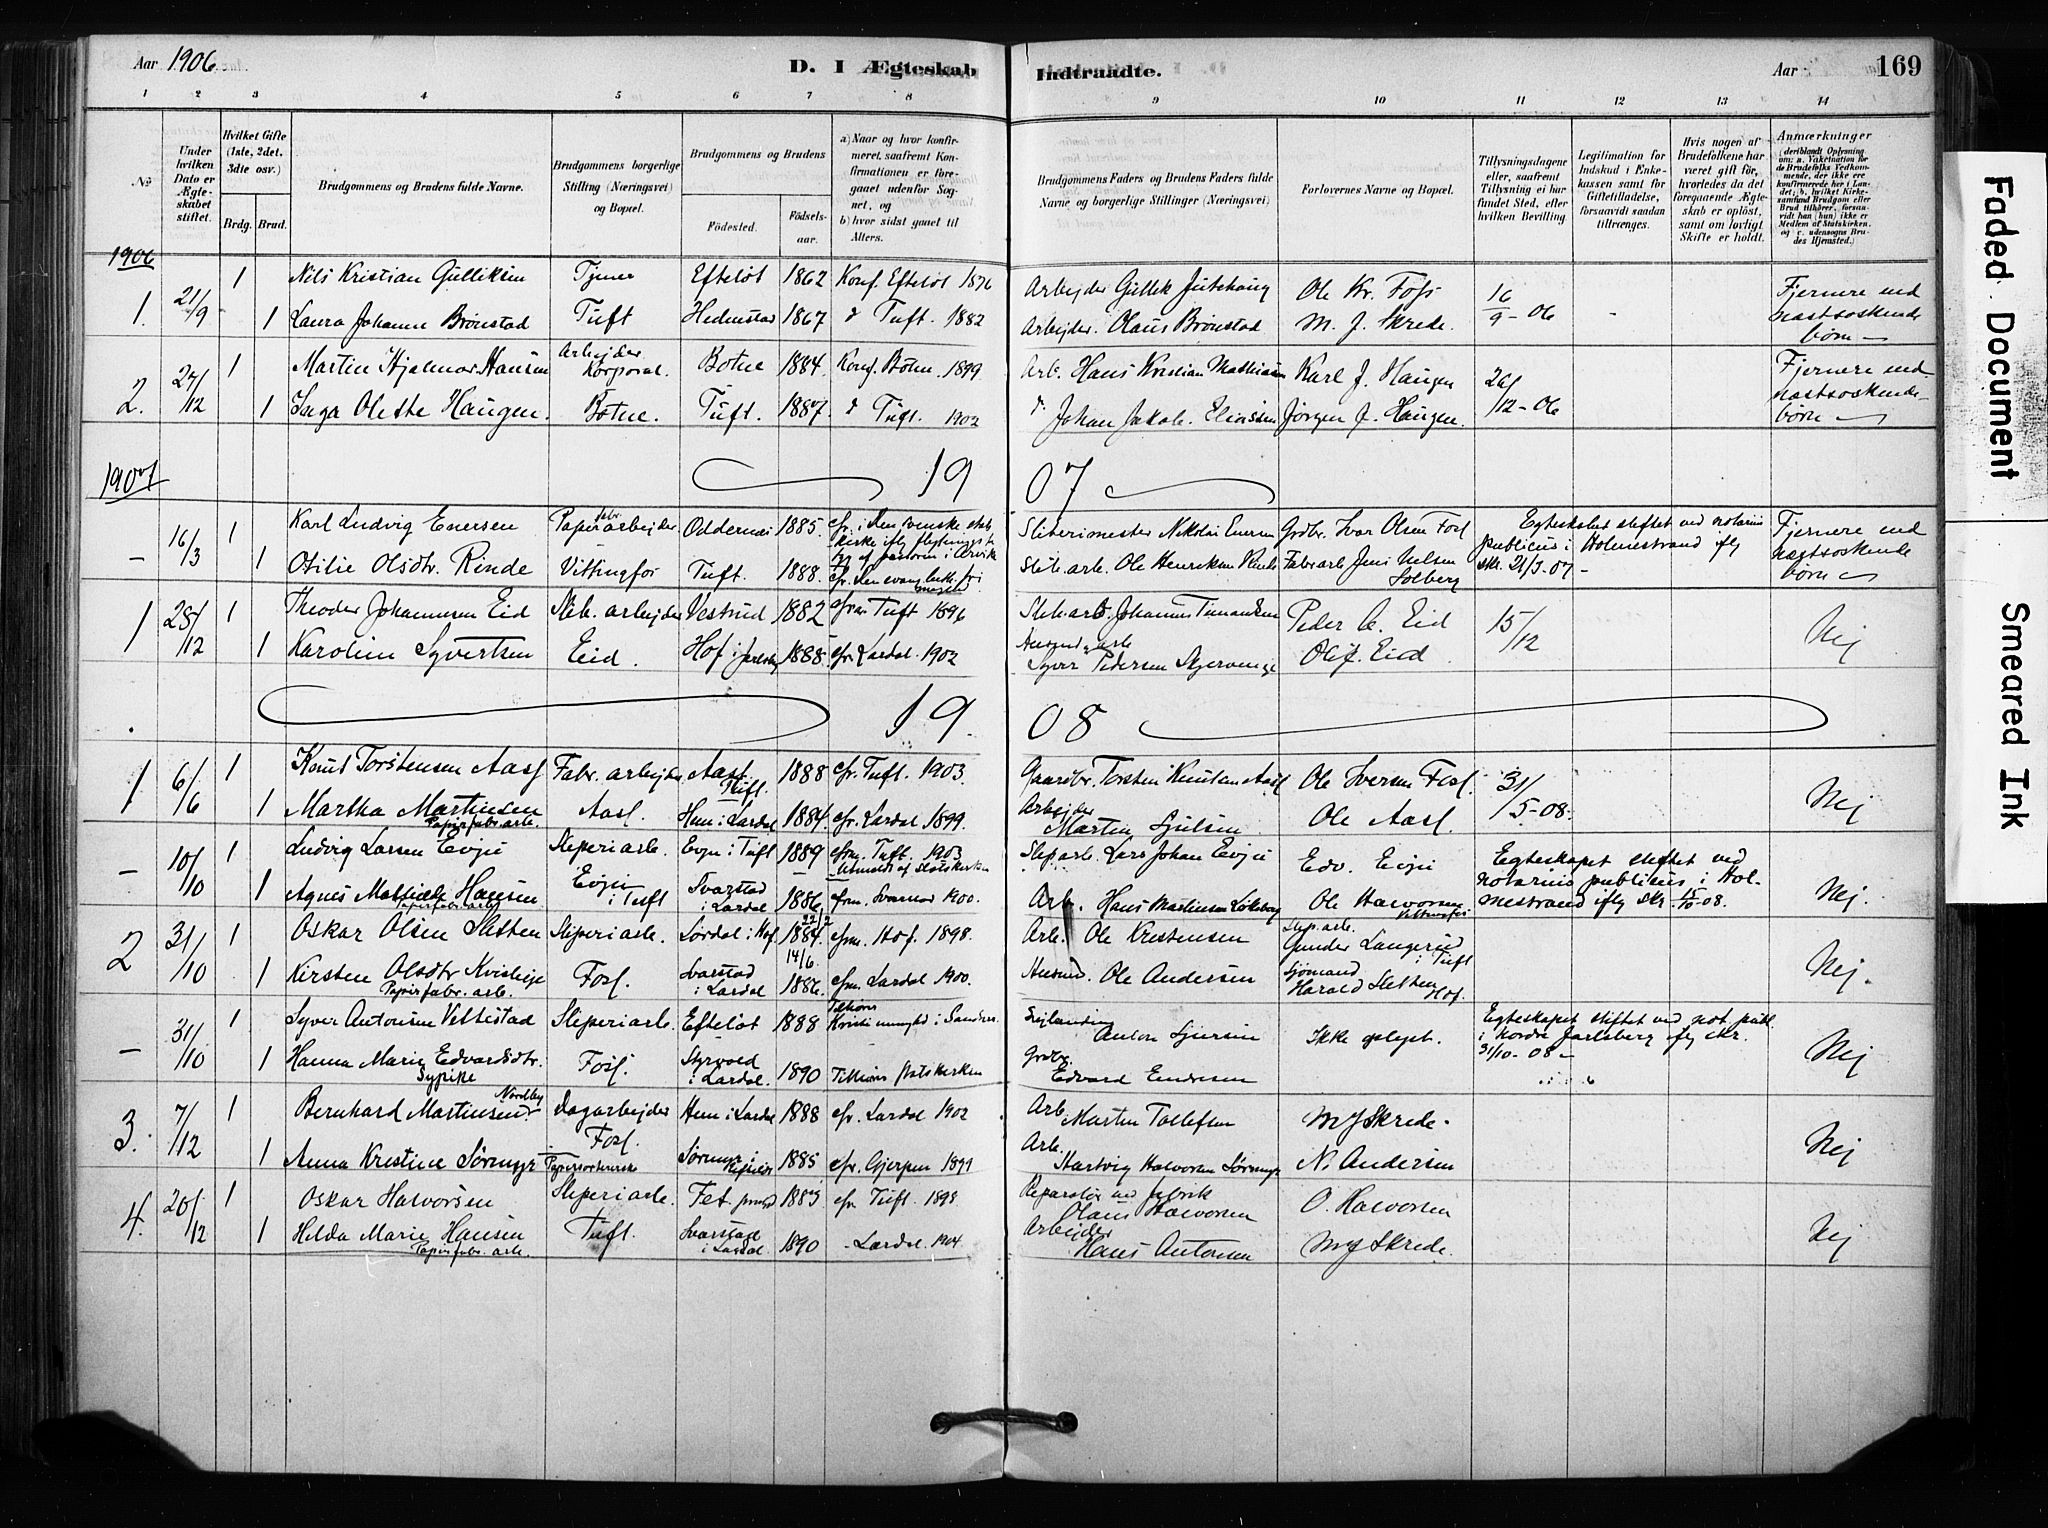 Aar 1906. D. I Ægteskab Indtraadte. Aar 169
1 2 3 4 5 6 7 8 9 10 11 12 13 14
№
Under hvilken Dato er Ægteskabet stiftet.
Hvilket Gifte (1ste, 2det, 3die osv.)
Brdg. Brud.
Brudgommens og Brudens fulde Navne.
Brudgommens borgerlige Stilling (Næringsvei) og Bopæl.
Brudgommens og Brudens
Fødested.
Fødselsaar.
a) Naar og hvor konfirmeret, saafremt Konfirmationen er foregaaet udenfor Sognet, og
b) hvor sidst gaaet til Alters.
Brudgommens Faders og Brudens Faders fulde Navne og borgerlige Stillinger (Næringsvei)
Forlovernes Navne og Bopæl.
Tillysningsdagene eller, saafremt Tillysning ei har fundet Sted, efter hvilken Bevilling.
Legitimation for Indskud i Enkekassen samt for Giftetilladelse, forsaavidt saadan tiltrænges.
Hvis nogen af Brudefolkene har været gift før, hvorledes da det foregaaende Ægteskab er opløst, samt om lovligt Skifte er holdt.
Anmærkninger
(deriblandt Oplysning om: a. Vakcination for de Brudefolks Vedkommende, der ikke ere konfirmerede her i Landet; b. hvilket Kirkesamfund Brudgom eller Brud tilhører, forsaavidt han (hun) ikke er Medlem af Statskirken, og c. udensogns Brudes Hjemsted.)
1906
1. 21/9 1 Nils Kristian Gulliksen Tjener Efteløt 1862 Konf. Efteløt 1876 Arbejder Gullik Ole Kr. Foss 16/9-06 - - Fjernere end næstsøskendebørn
1 Laura Johanne Brønstad Tuft Hedenstad 1867 d Tuft. 1882 Arbejder. Olaus Brønstad M. J. Skrede.
2. 27/12 1 Martin Hjalmar Hansen Arbejder Korporal. Botne 1884. Konf. Botne. 1899. Arb. Hans Kristian Mathisen Karl J. Haugen 26/12-06 Fjernere end næstsøskendebørn
1 Inga Olette Haugen. Botne. Tuft. 1887. d Tuft. 1902 d. Johan Jakob Eliassen Jørgen J. Haugen.
1907 19 07
- 16/3 1 Karl Ludvig Enersen Papirfabr. arbejder Oddernes 1885. cfr. i den svenske statskirke ifly Sliberimester Nikolai Enersen Grdbr. Ivar Olsen Fosl Egteskabet stiftet ved notarius publicus i Holmestrand ifly skr. 21/3-07- Fjernere end næstsøskendebørn
1 Otilie Olsdtr. Rinde Vittingfos Tuft. 1888. cfr. den evang. luth. fri Slib. arb. Ole Henriksen Rinde Fabr. arb Jens Nielsen Solberg
1 28/12 1 Theodor Johannesen Eid Slib. arbejder Vestrud 1882 cfr. Tuft 1896 Slib. arb. Johannes Peder C. Eid 15/12 Nej
1 Karoline Syvertsen Eid. Hof i Jarlsbg 1885 cfr. Lardal. 1902 Syver Pedersen Olij. Eid
19 08
1 6/6 1 Knut Torstensen Aasl Fabr. arbejder Aasl Tuft. 1888 cfr. Tuft. 1903. Gaardbr. Torsten Knutsen Aasl Ole Iversen Fosl. 31/5-08. Nej
1 Martha Martinsen Papirfabr. arb. Aasl. Hem i Lardal 1884. cfr. Lardal 1899. Arbejder Martin Ole Aasl.
- 10/10 1 Ludvig Larsen Evju Sliperiarb. Evju i Tuft 1889 cfm. Tuft. 1903 Utmeldt af Statskirken Slip. arb. Lars Johan Evju Edv. Evju Egteskapet stiftet ved notarius publicus i Holmestrand ifly skr. 15/10-08. Nej.
1 Agnes Mathilde Hansen Papirfabr. arb. Evju i Tuft Svarstad i Lardal 1886 cfm. 1900. Arb. Hans Martinsen Ole Halvorsen Vittingfos
2 31/10 1 Oskar Olsen Sletten Sliperiarb. Sørdal i Hof. 22/2 1884. cfm. Hof. 1898. Arb. Ole Kristensen Slip. arb. Gunder Langerud i Tuft Nej.
1 Kirsten Olsdtr Papirfabr. arb. Fosl. Svarstad i Lardal 14/6 1886. cfm. Lardal 1900. Husmd. Ole Andersen Sjømand Harald Sletten Hof.
- 31/10 1 Syver Antonsen Vettestad Sliperiarb. Efteløt 1888 Tilhører i Sandsv. Anton Ikke oplyst. Egteskapet stiftet ved not. publ. i Nordre Jarlsberg ifly skr. 31/10-08- Nej
1 Hanna Marie Edvardsdtr. Sypike Fosl. Styrvold i Lardal. 1890 Tilhører statskirken Grdbr. Edvard Endresen
3. 7/12 1 Bernhard Martinsen Nordby Dagarbejder Fosl. Hem i Lardal 1888 cfr. Lardal 1902 Arb. Martin Tollefsen M J Skrede. Nej
1 Anna Kristine Sørmyr Papirsorterersk Sørmyr i 1885 cfr. Gjerpen 1899 Arb. Hartvig Halvorsen Sørmyr N. Andersen
4. 26/12 1 Oskar Halvorsen Sliperiarb. Fet 1883 cfr Tuft. 1898 Reparatør ved fabrik Olaus Halvorsen O. Halvorsen Nej
1 Hilda Marie Hansen Papirfabr. arb. Tuft. Svarstad i Lardal 1890 - Lardal. 1904 Arbejder Hans Antonsen M J Skrede.
Faded Document
Smeared Ink